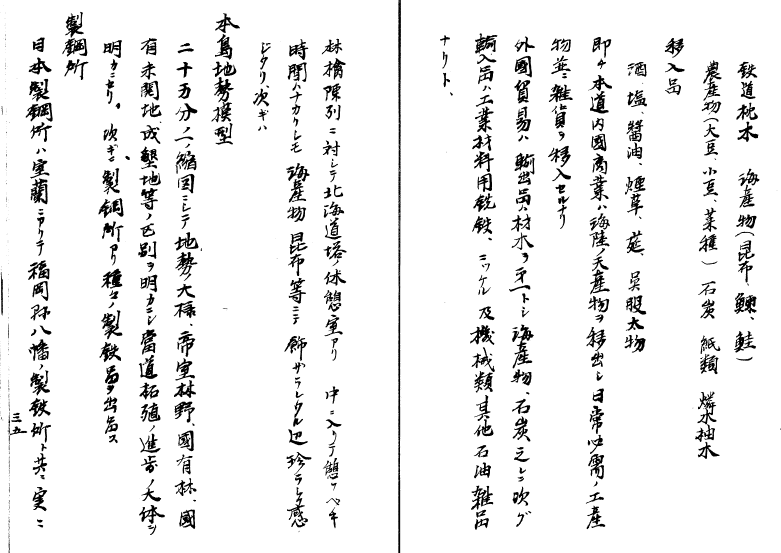 鉄道枕木　海産物（昆布、鰊、鮭）
農産物（大豆、小豆、菜種）石炭　紙類　燐寸抽木
移入品
酒、塩、醤油、煙草、莚、呉服太物
即チ本道内國商業ハ海陸ノ天産物ヲ移出シ日常必需ノ工産
物並ニ雑貨ヲ移入セルナリ
外國貿易ハ輸出品ハ材木ヲ第一トシ海産物、石炭之レニ次グ
輸入品ハ工業材料用銑鉄、ニッケル及機械類其他石油雑品
ナリト、
林檎陳列ニ対シテ北海道塔ノ休憩室アリ　中ニ入リテ憩フベキ
時間ハナカリシモ海産物昆布等ニテ飾サラレタル辺珍ラシク感
ジタリ、次ギハ
本島地勢模型
二十五分ノ一ノ縮図ニシテ地勢ノ大様、帝室林野、國有林、國
有未開地、成墾地等ノ区別ヲ明カニシ當道拓殖ノ進歩ノ大体ヲ
明カニセリ。次ギニ製鋼所アリ種々ノ製鉄品ヲ出品ス
製鋼所
日本製鋼所ハ室蘭ニアリテ福岡県八幡ノ製鉄所ト共ニ実ニ
三五